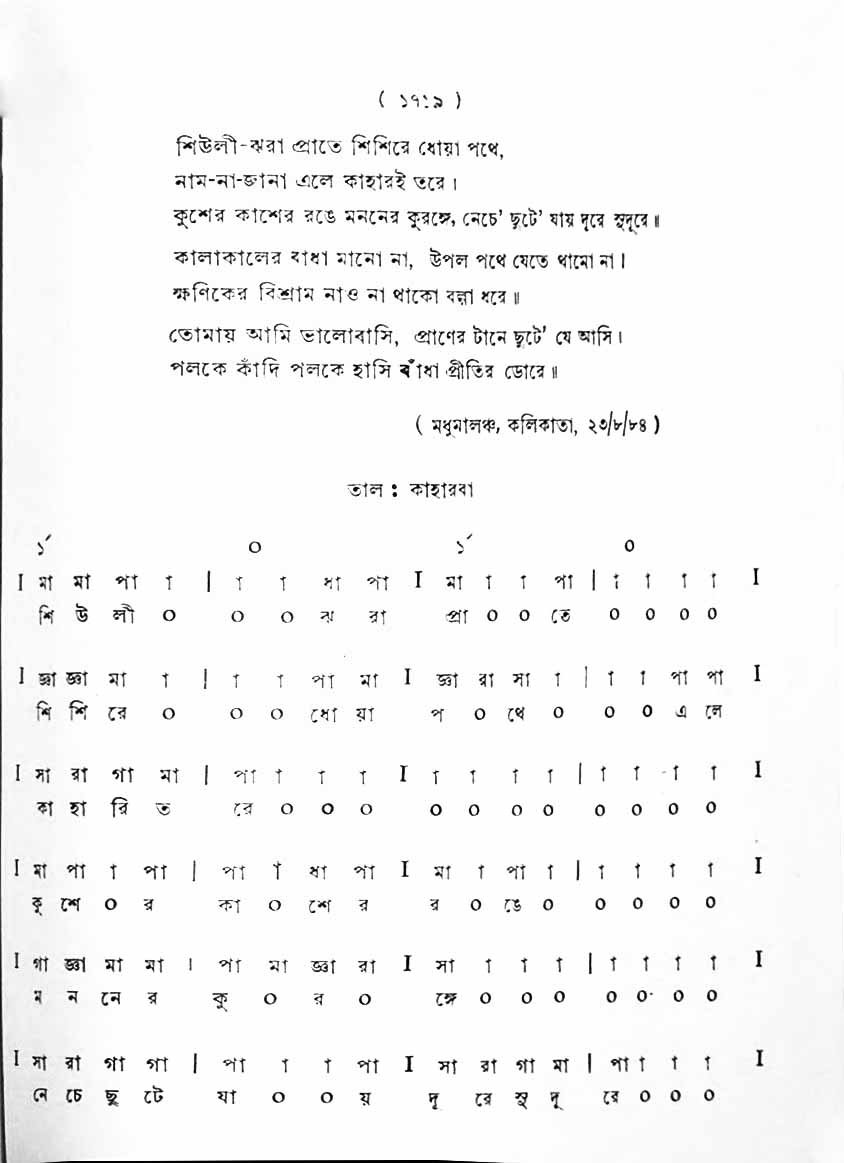 ( ১৭১৯ )
শিউলী-ঝরা প্রাতে শিশিরে ধোয়া পথে,
নাম-না-জানা এলে কাহারই তরে।
কুশের কাশের রঙে মননের কুরঙ্গে, নেচে' ছুটে' যায় দূরে সুদূরে॥
কালাকালের বাধা মানো না, উপল পথে যেতে থামো না।
ক্ষণিকের বিশ্রাম নাও না থাকো বল্গা ধরে॥
তোমায় আমি ভালোবাসি, প্রাণের টানে ছুটে' যে আসি।
পলকে কাঁদি পলকে হাসি বাঁধা প্রীতির ডোরে॥
( মধুমালঞ্চ, কলিকাতা, ২৩/৮/৮৪ )
তাল : কাহারবা
১´ ০ ১´ ০
I মা মা পা া | া া ধা পা I মা া া পা | া া া া I
শি উ লী ০ ০ ০ ঝ রা প্রা ০ ০ তে ০ ০ ০ ০
I জ্ঞা জ্ঞা মা া | া া পা মা I জ্ঞা রা সা া | া া পা পা I
শি শি রে ০ ০ ০ ধো য়া প ০ থে ০ ০ ০ এ লে
I সা রা গা মা | পা া া া I া া া া | া া া া I
কা হা রি ত রে ০ ০ ০ ০ ০ ০ ০ ০ ০ ০ ০
I মা পা া পা | পা া ধা পা I মা া পা া | া া া া I
কু শে ০ র কা ০ শে র র ০ ঙে ০ ০ ০ ০ ০
I গা জ্ঞা মা মা । পা মা জ্ঞা রা I সা া া া | া া া া I
ম ন নে র কু ০ র ০ ঙ্গে ০ ০ ০ ০ ০ ০ ০
I সা রা গা গা | পা া া পা I সা রা গা মা | পা া া া I
নে চে ছু টে যা ০ ০ য় দূ রে সু দূ রে ০ ০ ০